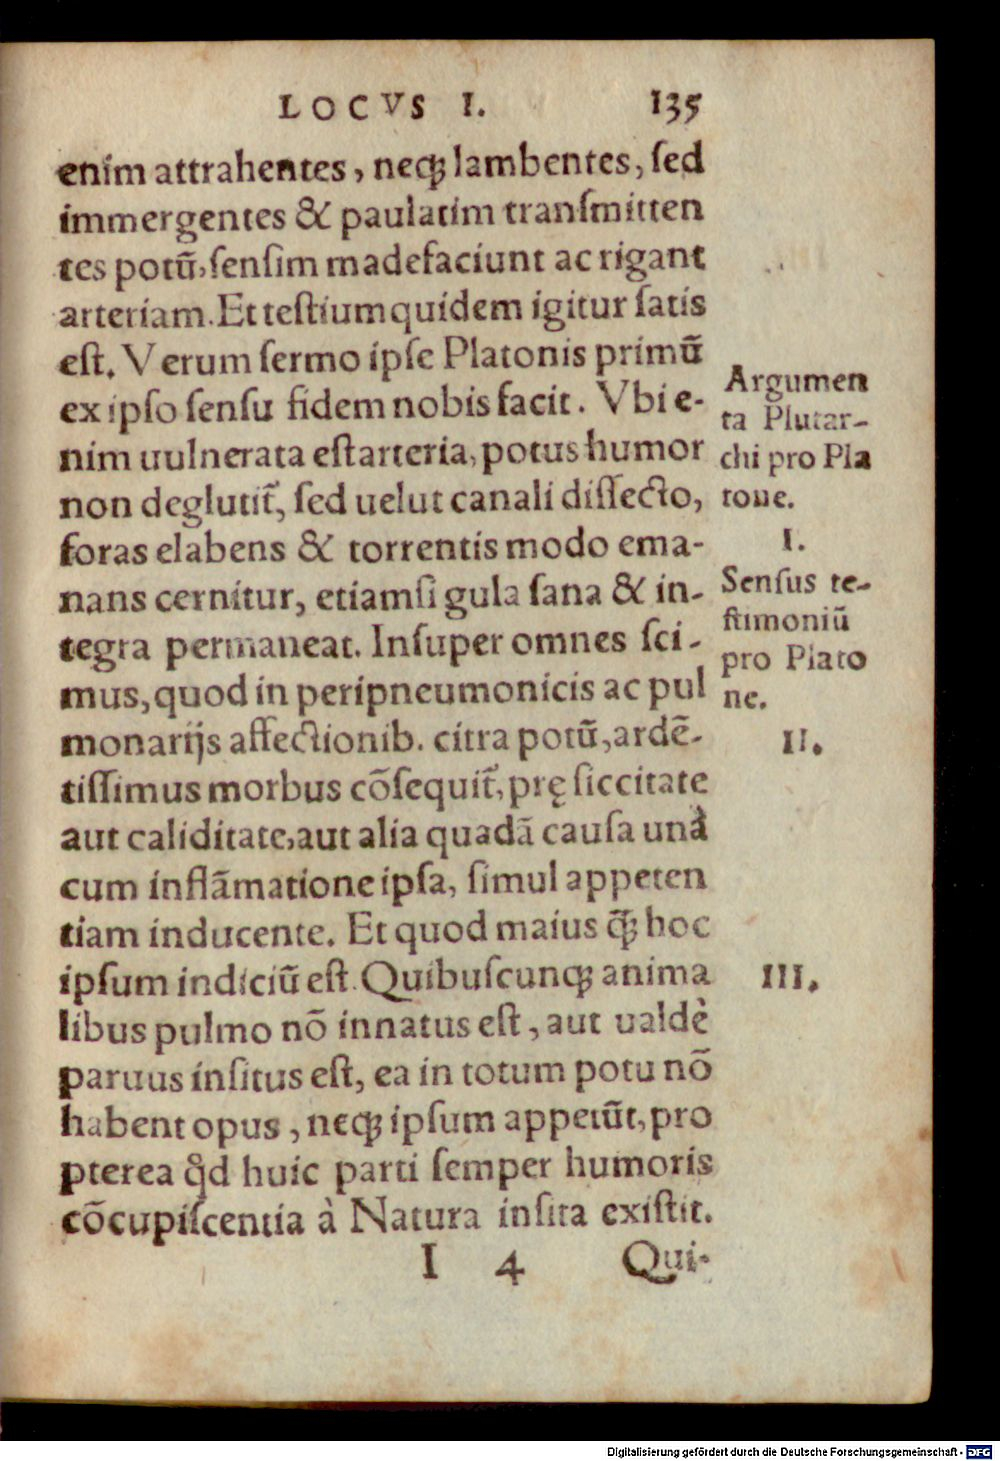 LOCVS I. 135
enim attrahentes, neqꝫ lambentes, ſed
immergentes & paulatim tranſmitten
tes potũ, ſenſim madefaciunt ac rigant
arteriam. Et teſtium quidem igitur ſatis
eſt. Verum ſermo ipſe Platonis primũ
ex ipſo ſenſu fidem nobis facit. Vbi e-
nim uulnerata eſt arteria, potus humor
non deglutit᷑, ſed uelut canali diſſecto,
foras elabens & torrentis modo ema-
nans cernitur, etiamſi gula ſana & in-
tegra permaneat. Inſuper omnes ſci-
mus, quod in peripneumonicis ac pul
monarijs affectionib. citra potũ, ardẽ-
tiſſimus morbus cõſequit᷑, prę ſiccitate
aut caliditate, aut alia quadã cauſa unà
cum inflãmatione ipſa, ſimul appeten
tiam inducente. Et quod maius q̃ꝫ hoc
ipſum indiciũ eſt. Quibuſcunqꝫ anima
libus pulmo nõ innatus eſt, aut ualdè
paruus inſitus eſt, ea in totum potu nõ
habent opus, neqꝫ ipſum appetũt, pro
pterea qͦd huic parti ſemper humoris
cõcupiſcentia à Natura inſita exiſtit.
I 4 Qui-
Argumen
ta Plutar-
chi pro Pla
tone.
I.
Senſus te-
ſtimoniũ
pro Plato
ne.
II.
III.
Digitalisierung gefördert durch die Deutsche Forschungsgemeinschaft - DFG